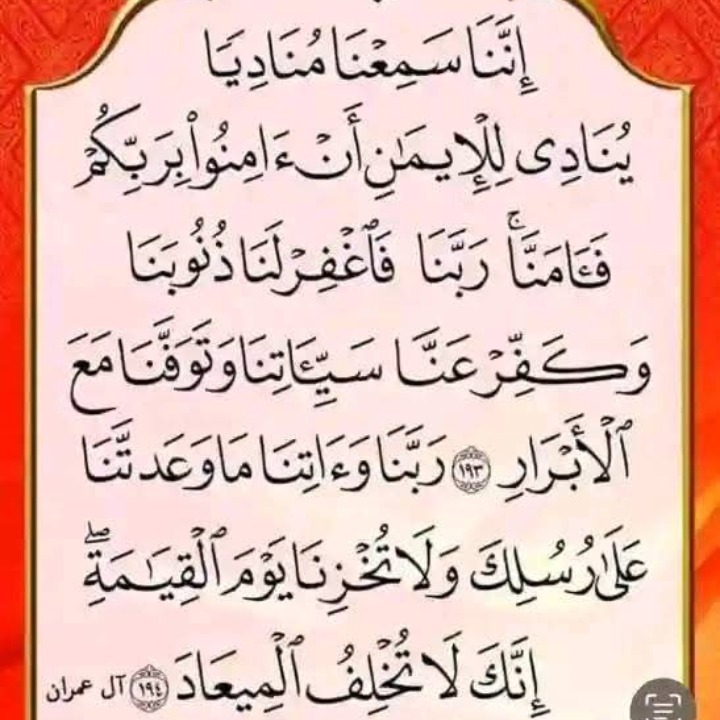 إِنَّنَا سَمِعْنَا مُنَادِيًا
يُنَادِى لِلْإِيمَٰنِ أَنْ ءَامِنُوا۟ بِرَبِّكُمْ
فَـَٔامَنَّا ۚ رَبَّنَا فَٱغْفِرْ لَنَا ذُنُوبَنَا
وَكَفِّرْ عَنَّا سَيِّـَٔاتِنَا وَتَوَفَّنَا مَعَ
ٱلْأَبْرَارِ ١٩٣ رَبَّنَا وَءَاتِنَا مَا وَعَدتَّنَا
عَلَىٰ رُسُلِكَ وَلَا تُخْزِنَا يَوْمَ ٱلْقِيَٰمَةِ ۖ
إِنَّكَ لَا تُخْلِفُ ٱلْمِيعَادَ ١٩٤ آل عمران